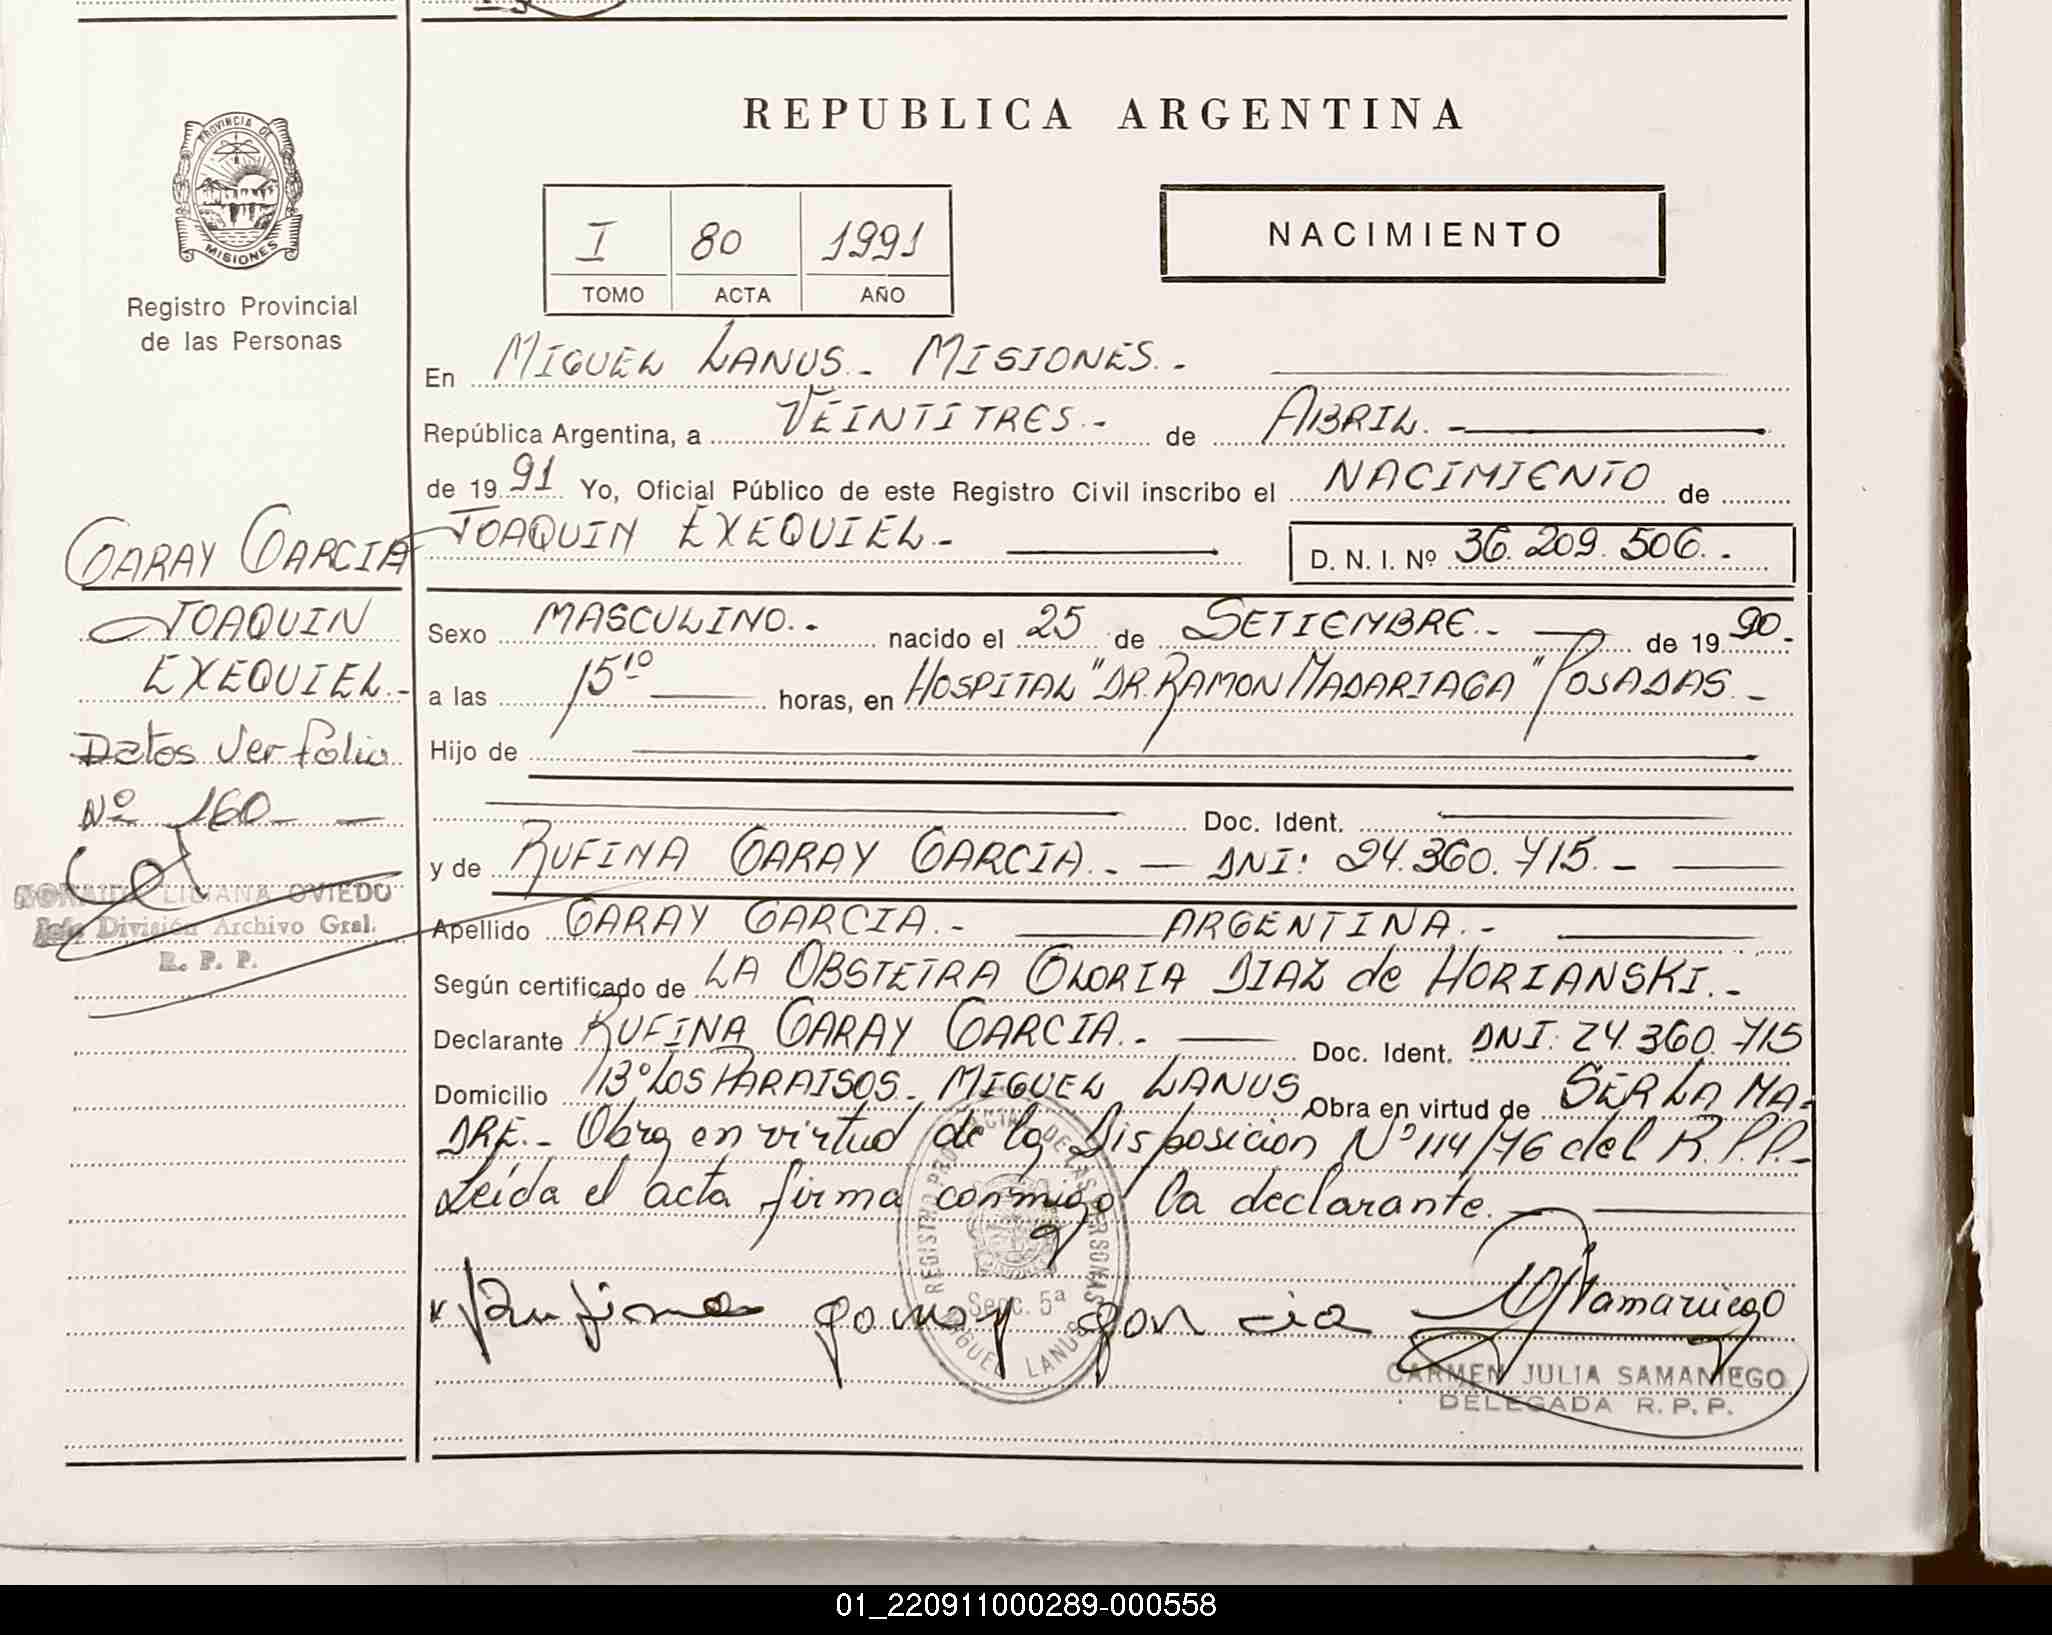 REPUBLICA ARGENTINA
PROVINCIA DE
MISIONES
Registro Provincial
de las Personas
I 80 1991
TOMO ACTA AÑO
NACIMIENTO
En MIGUEL LANUS.- MISIONES.-
República Argentina, a VEINTITRES.- de ABRIL.-
de 1991 Yo, Oficial Público de este Registro Civil inscribo el NACIMIENTO de
JOAQUIN EXEQUIEL.- D. N. I. Nº 36.209.506.-
Sexo MASCULINO.- nacido el 25 de SETIEMBRE.- de 1990.-
a las 15¹⁰ horas, en HOSPITAL "DR. RAMON MADARIAGA" POSADAS.-
Hijo de
Doc. Ident.
y de RUFINA GARAY GARCIA.- DNI: 24.360.715.-
Apellido GARAY GARCIA.- ARGENTINA.-
Según certificado de LA OBSTETRA GLORIA DIAZ de HORIANSKI.-
Declarante RUFINA GARAY GARCIA.- Doc. Ident. DNI: 24.360.715
Domicilio Bº LOS PARAISOS. MIGUEL LANUS Obra en virtud de SER LA MA-
DRE.- Obra en virtud de la Disposicion Nº 114/76 del R.P.P.-
Leída el acta firma conmigo la declarante.
GARAY GARCIA
JOAQUIN
EXEQUIEL.-
Datos ver folio
Nº 160-
LILIANA OVIEDO
Jefe División Archivo Gral.
R. P. P.
x Rufina garay garcia
REGISTRO PROVINCIAL DE LAS PERSONAS
Secc. 5ª
MIGUEL LANUS
Samaniego
CARMEN JULIA SAMANIEGO
DELEGADA R. P. P.
01_220911000289-000558